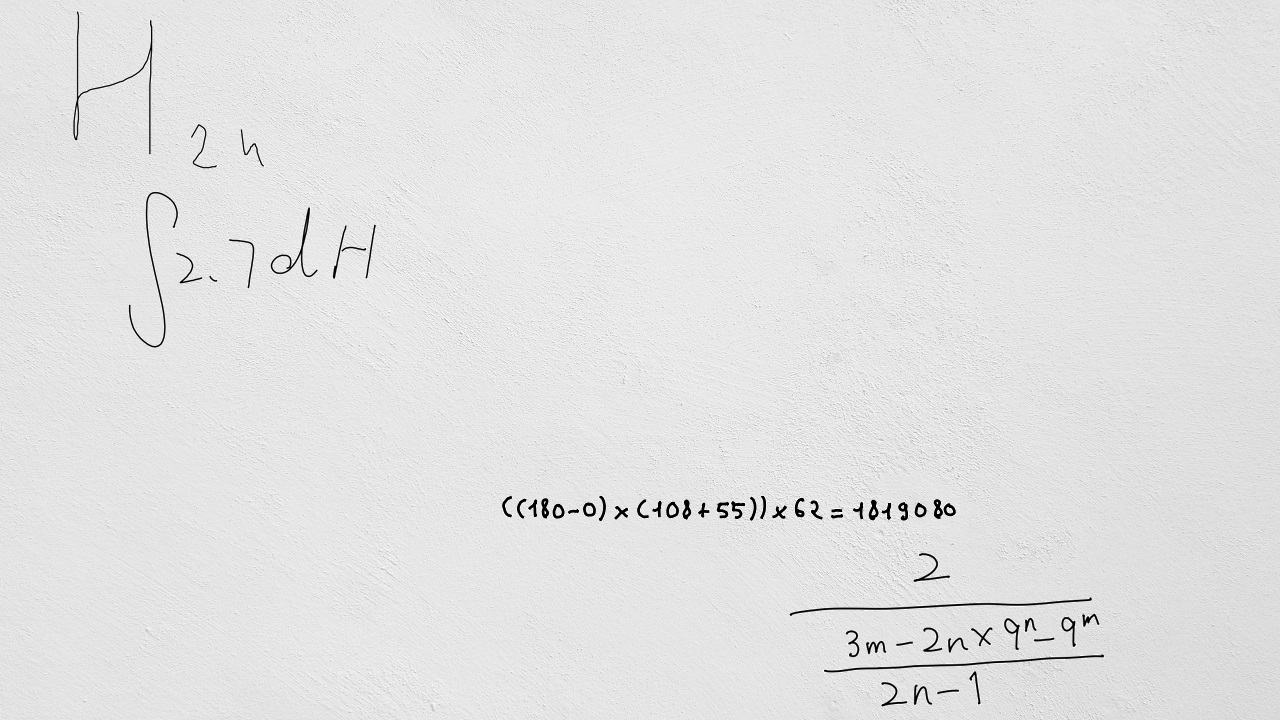 H_{2n}
∫2.7dH
((180-0)×(108+55))×62=1819080
\frac{2}{\frac{3m-2n×9^n-9^m}{2n-1}}